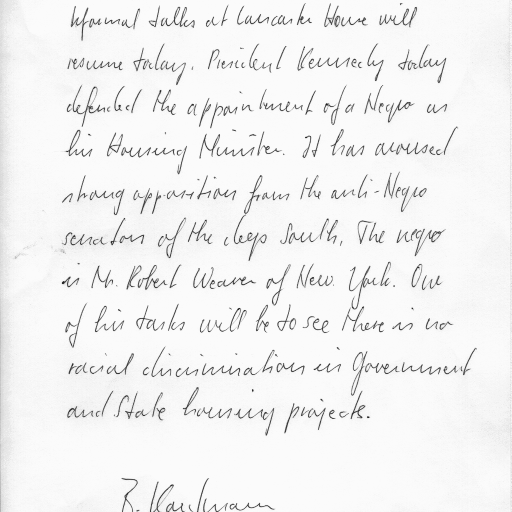 Informal talks at Lancaster House will
resume today. President Kennedy today
defended the appointment of a Negro as
his Housing Minister. It has aroused
strong opposition from the anti-Negro
senators of the deep South. The negro
is Mr. Robert Weaver of New York. One
of his tasks will be to see there is no
racial discrimination in Government
and State housing projects.
B.